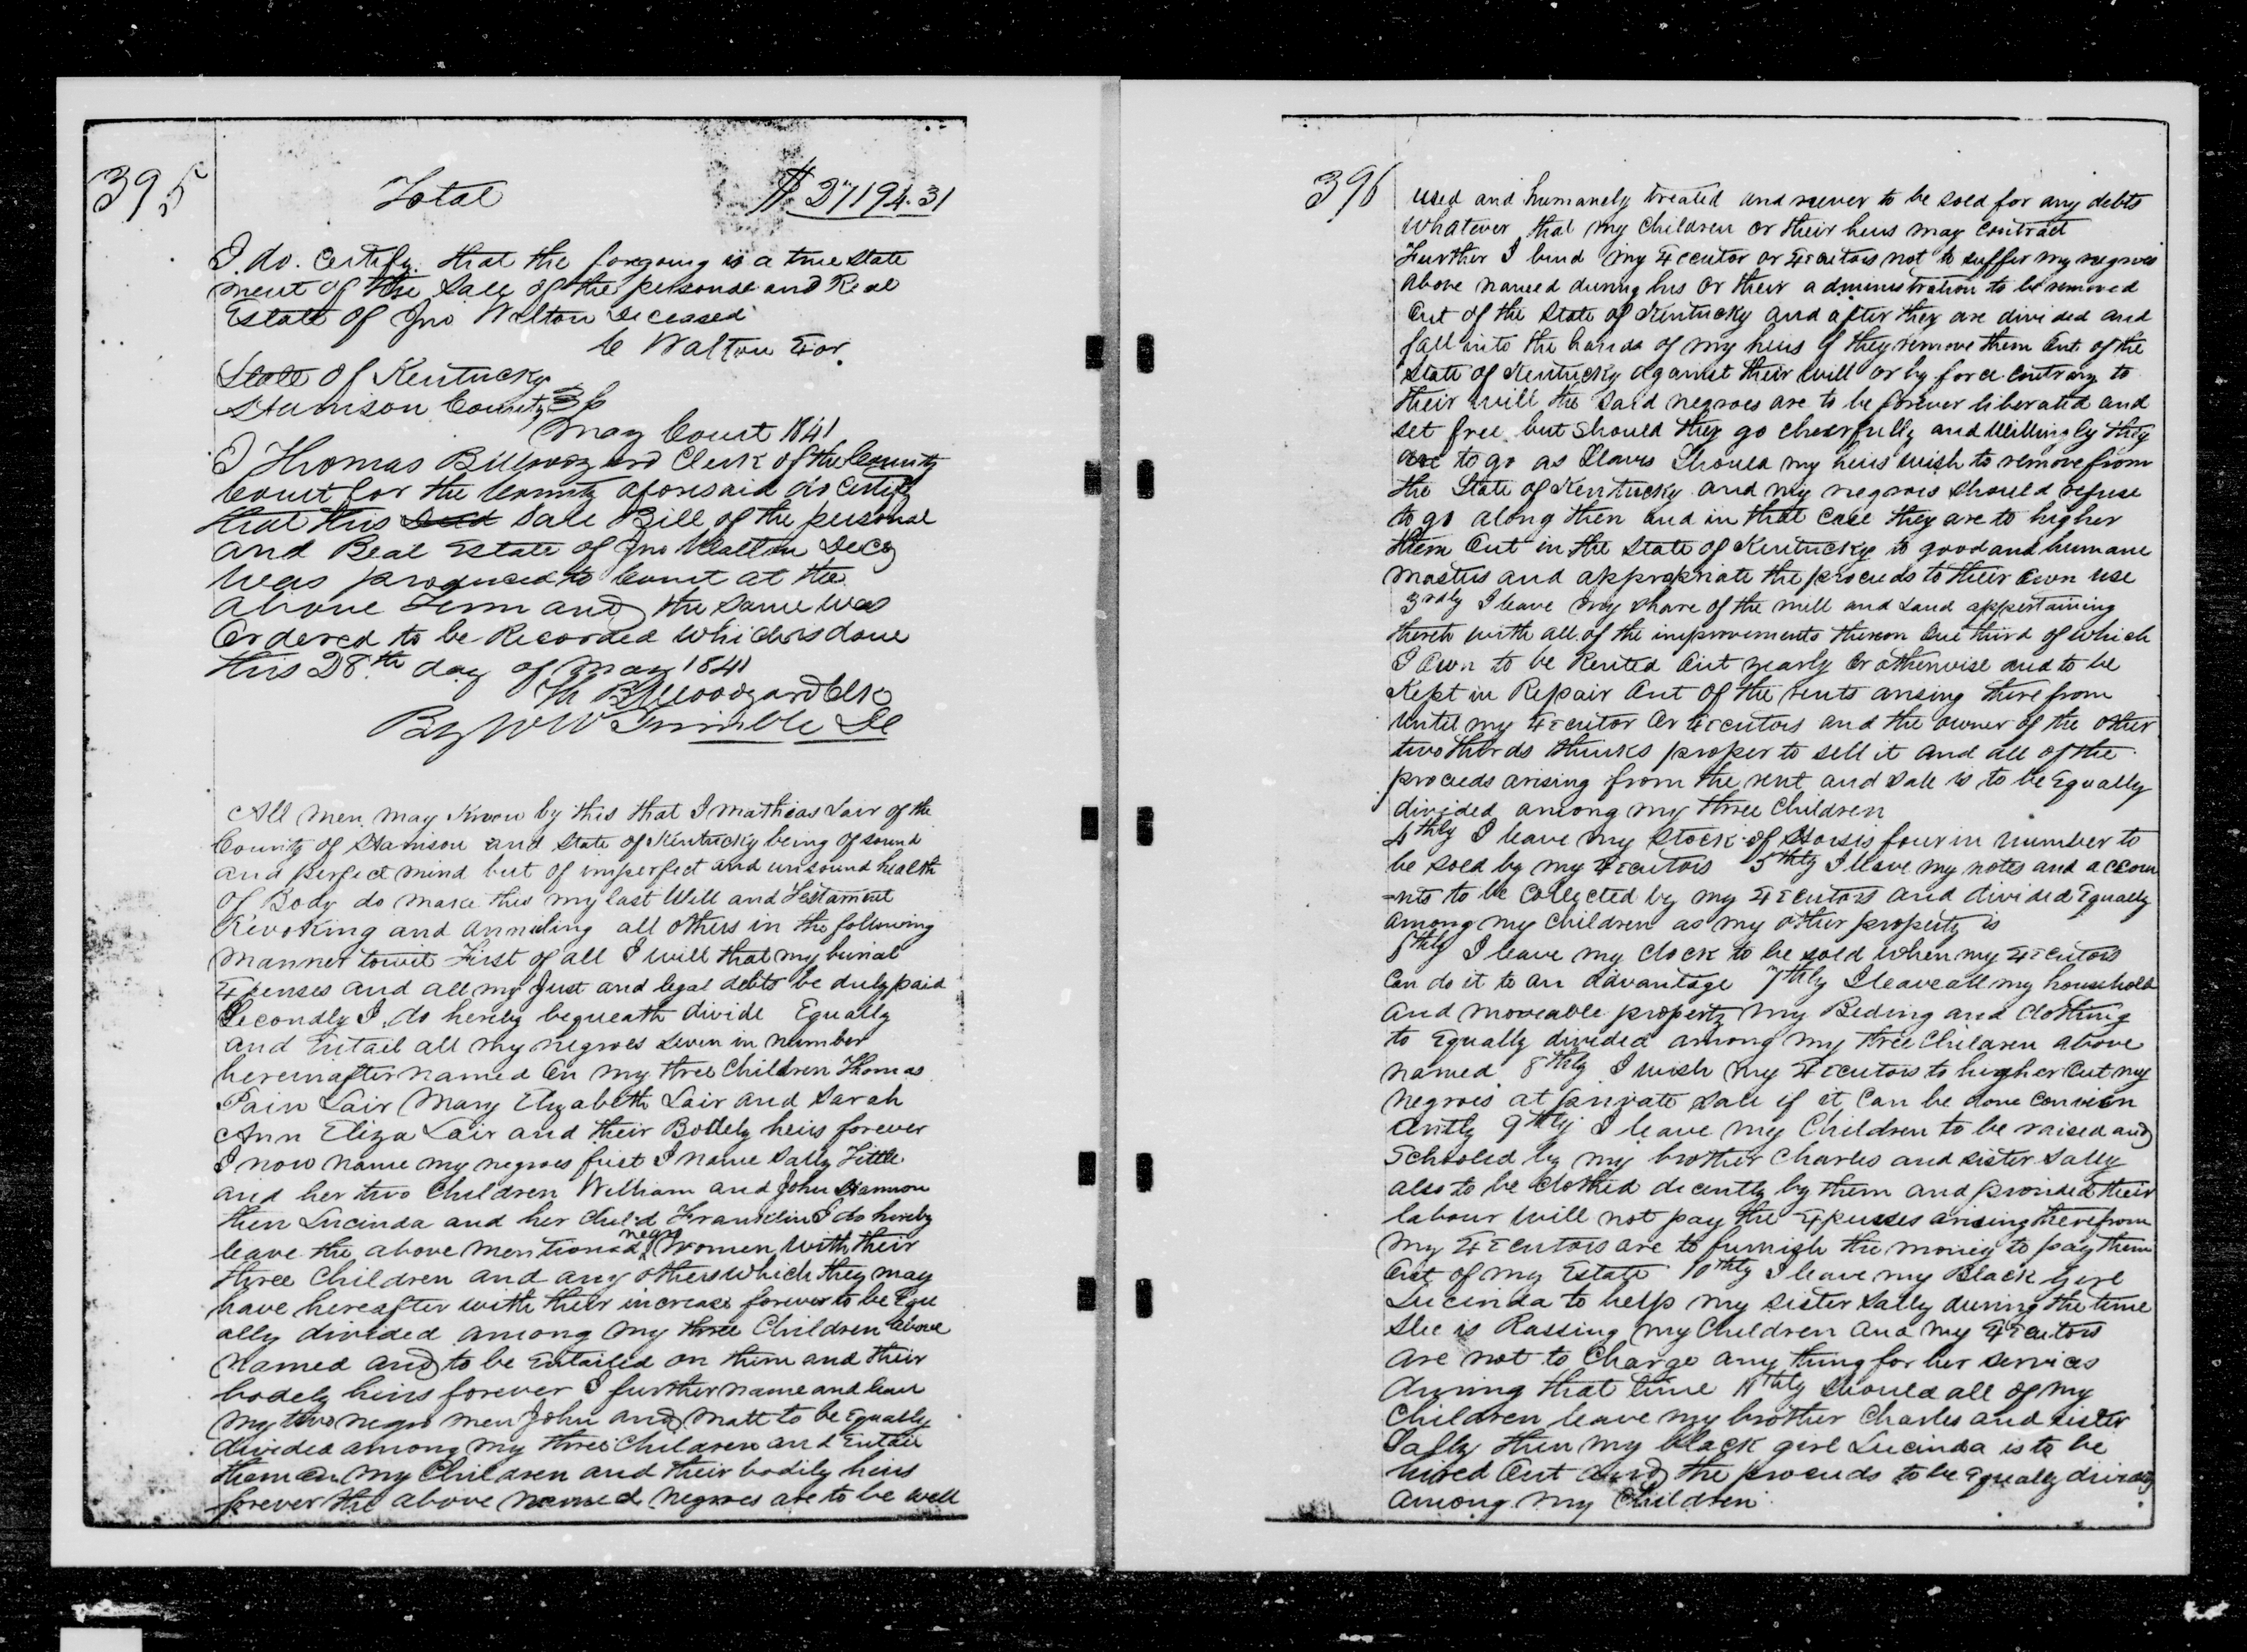 395
Total $27194.31
I do. Certify. that the foregoing is a true State
ment of the Sale of the personal and Real
Estate of Jno Walton Deceased
C Walton Exor.
State of Kentucky
Harrison County
May Court 1841
I Thomas B Woodyard Clerk of the County
Court for the County aforesaid do Certify
that this Sale Bill of the personal
and Real Estate of Jno Walton Decd
was produced to Court at the
above Term and the same was
Ordered to be Recorded which is done
this 28th day of May 1841
Th B Woodyard Clk
By W W Trimble DC
All men may Know by this that I Mathias Lair of the
County of Harrison and State of Kentucky being of sound
and perfect mind but of imperfect and unsound health
of Body do make this my last Will and Testament
Revoking and annuling all others in the following
manner towit First of all I will that my burial
Expenses and all my Just and legal debts be duly paid
Secondly I do hereby bequeath divide Equally
and Entail all my negroes seven in number
hereinafter named on my three Children Thomas
Pain Lair Mary Elizabeth Lair and Sarah
Ann Eliza Lair and their Bodely heirs forever
I now name my negroes first I name Sally Little
and her two Children William and John Harrison
then Lucinda and her child Franklin I do hereby
leave the above mentioned negro women with their
three Children and any others which they may
have hereafter with their increase forever to be Equ
ally divided among my three Children above
named and to be Entailed on them and their
bodely heirs forever I further name and leave
my two negro men John and Matt to be Equally
divided among my three Children and Entail
them on my Children and their bodily heirs
forever the above named negroes are to be well
396
used and humanely treated and never to be sold for any debts
whatever that my Children or their heirs may contract
Further I bind my Executor or Executors not to suffer my negroes
above named during his or their administration to be removed
Out of the State of Kentucky and after they are divided and
fall into the hands of my heirs if they remove them Out of the
State of Kentucky against their will or by force contrary to
their will the said negroes are to be forever liberated and
set free but should they go cheerfully and willingly they
are to go as Slaves Should my heirs wish to remove from
the State of Kentucky and my negroes should refuse
to go along then and in that case they are to higher
them Out in the State of Kentucky to good and humane
masters and appropriate the proceeds to their own use
3rdly I leave my share of the mill and Land appertaining
thereto with all of the improvements thereon One third of which
I Own to be Rented Out yearly or otherwise and to be
Kept in Repair Out of the rents arising there from
until my Executor or Executors and the owner of the other
two thirds thinks proper to sell it and all of the
proceeds arising from the rent and sale is to be Equally
divided among my three Children
4thly I leave my Stock of Horses four in number to
be sold by my Executors 5thly I leave my notes and accou
=nts to be collected by my Executors and divided Equally
among my children as my other property is
6thly I leave my clock to be sold when my Executors
Can do it to an advantage 7thly I leave all my household
and moveable property my Beding and clothing
to Equally divided among my three Children above
named 8thly I wish my Executors to higher Out my
negroes at private sale if it can be done convien
antly 9thly I leave my Children to be raised and
Schooled by my brother Charles and sister Sally
also to be clothed decently by them and provided their
labour will not pay the Expenses arising therefrom
my Executors are to furnish the money to pay them
Out of my Estate 10thly I leave my Black Girl
Lucinda to help my sister Sally during the time
she is Rassing my Children and my Executors
are not to Charge any thing for her services
during that time 11thly should all of my
Children leave my brother Charles and sister
Sally then my black girl Lucinda is to be
hired Out and the proceeds to be Equally divided
among my Children